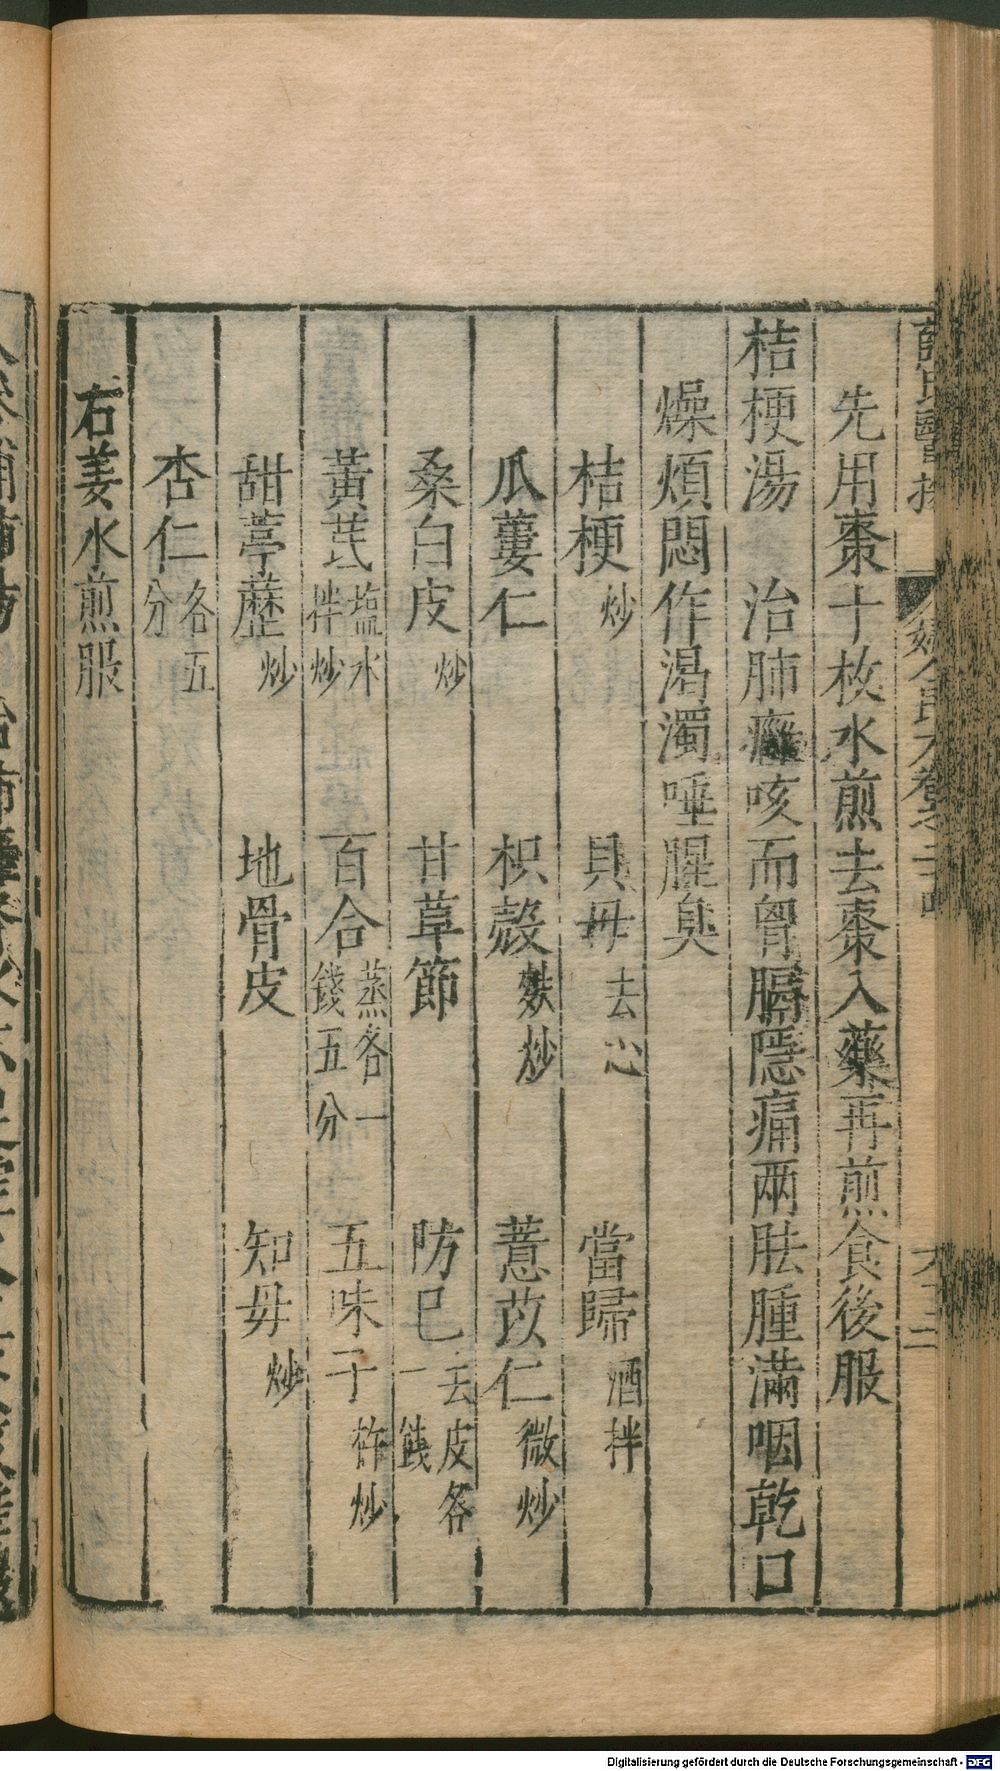 先用棗十枚水煎去棗入藥再煎食後服
桔梗湯　治肺癰咳而胷膈隱痛兩胠腫滿咽乾口
燥煩悶作渴濁唾腥臭
桔梗炒　貝母去心　當歸酒拌
瓜蔞仁　枳殼麩炒　薏苡仁微炒
桑白皮炒　甘草節　防己去皮各一錢
黃芪塩水拌炒　百合蒸各一錢五分　五味子杵炒
甜葶藶炒　地骨皮　知母炒
杏仁各五分
右姜水煎服
Digitalisierung gefördert durch die Deutsche Forschungsgemeinschaft - DFG